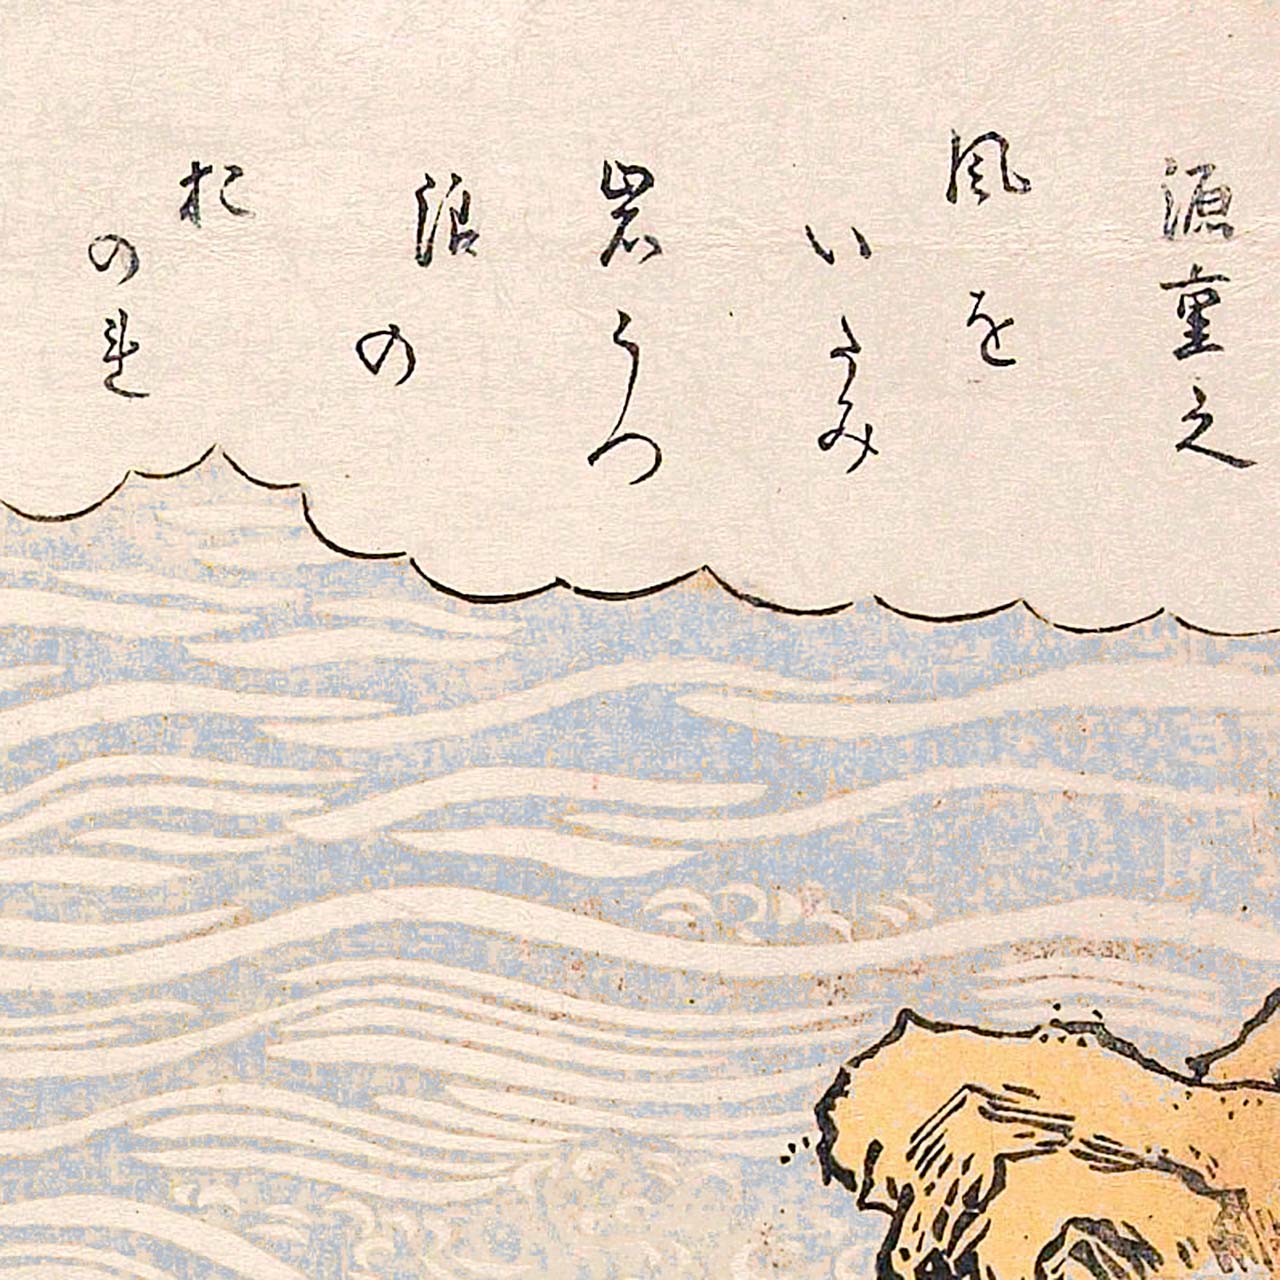 源重之
風を
いたみ
岩うつ
浪の
おのれ